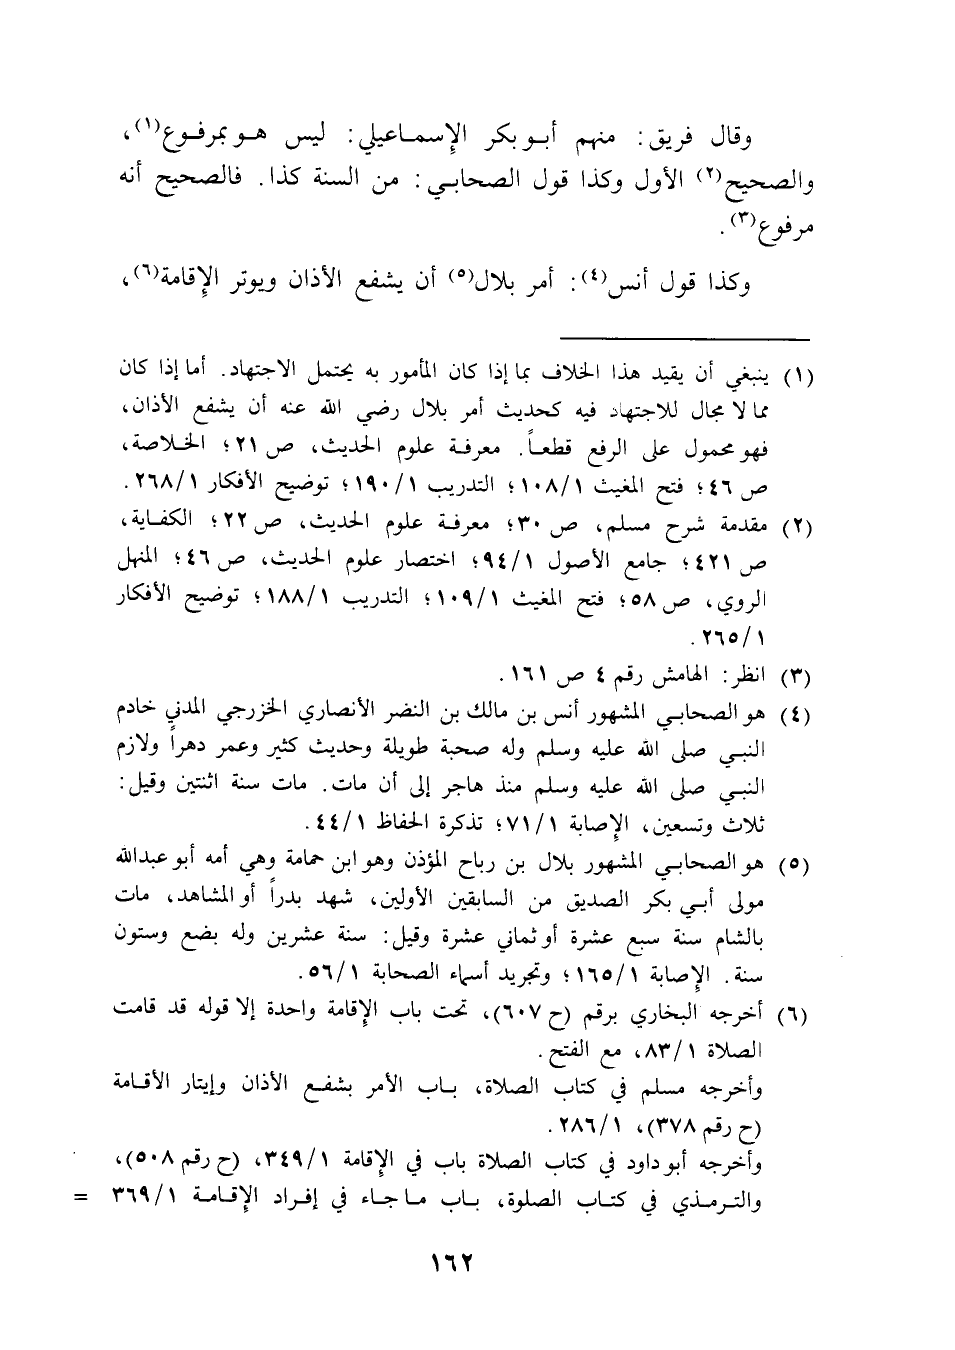 وقال فريق: منهم أبو بكر الإسماعيلي: ليس هو بمرفوع(١)،
والصحيح(٢) الأول وكذا قول الصحابي: من السنة كذا. فالصحيح أنه
مرفوع(٣).
وكذا قول أنس(٤): أمر بلال(٥) أن يشفع الأذان ويوتر الإقامة(٦)،
(١) ينبغي أن يقيد هذا الخلاف بما إذا كان المأمور به يحتمل الاجتهاد. أما إذا كان
مما لا مجال للاجتهاد فيه كحديث أمر بلال رضي الله عنه أن يشفع الأذان،
فهو محمول على الرفع قطعاً. معرفة علوم الحديث، ص ٢١؛ الخلاصة،
ص ٤٦؛ فتح المغيث ١/١٠٨؛ التدريب ١/١٩٠؛ توضيح الأفكار ١/٢٦٨.
(٢) مقدمة شرح مسلم، ص ٣٠؛ معرفة علوم الحديث، ص ٢٢؛ الكفاية،
ص ٤٢١؛ جامع الأصول ١/٩٤؛ اختصار علوم الحديث، ص ٤٦؛ المنهل
الروي، ص ٥٨؛ فتح المغيث ١/١٠٩؛ التدريب ١/١٨٨؛ توضيح الأفكار
١/٢٦٥.
(٣) انظر: الهامش رقم ٤ ص ١٦١.
(٤) هو الصحابي المشهور أنس بن مالك بن النضر الأنصاري الخزرجي المدني خادم
النبي صلى الله عليه وسلم وله صحبة طويلة وحديث كثير وعمر دهراً ولازم
النبي صلى الله عليه وسلم منذ هاجر إلى أن مات. مات سنة اثنتين وقيل:
ثلاث وتسعين، الإصابة ١/٧١؛ تذكرة الحفاظ ١/٤٤.
(٥) هو الصحابي المشهور بلال بن رباح المؤذن وهو ابن حمامة وهي أمه أبو عبدالله
مولى أبي بكر الصديق من السابقين الأولين، شهد بدراً أو المشاهد، مات
بالشام سنة سبع عشرة أو ثماني عشرة وقيل: سنة عشرين وله بضع وستون
سنة. الإصابة ١/١٦٥؛ وتجريد أسماء الصحابة ١/٥٦.
(٦) أخرجه البخاري برقم (ح ٦٠٧)، تحت باب الإقامة واحدة إلا قوله قد قامت
الصلاة ١/٨٣، مع الفتح.
وأخرجه مسلم في كتاب الصلاة، باب الأمر بشفع الأذان وإيتار الأقامة
(ح رقم ٣٧٨)، ١/٢٨٦.
وأخرجه أبو داود في كتاب الصلاة باب في الإقامة ١/٣٤٩، (ح رقم ٥٠٨)،
والترمذي في كتاب الصلوة، باب ما جاء في إفراد الإقامة ١/٣٦٩ =
١٦٢